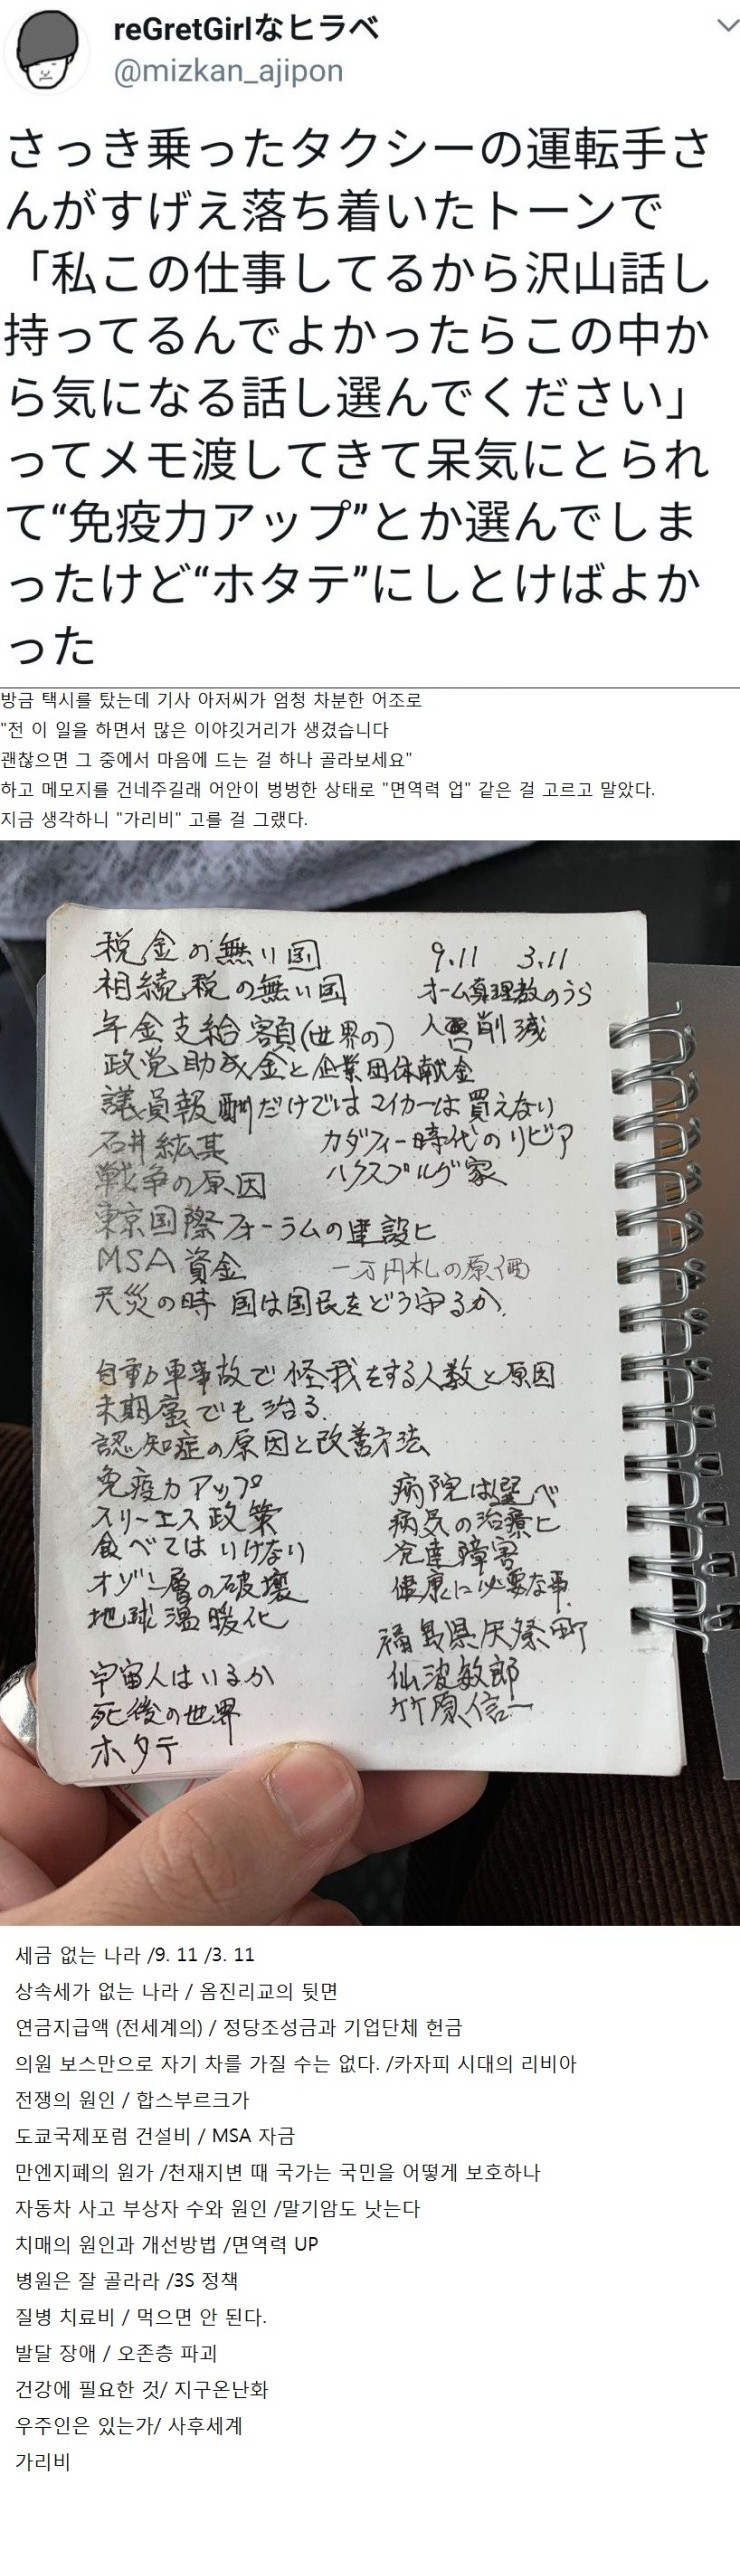 reGretGirlなヒラベ
@mizkan_ajipon
さっき乗ったタクシーの運転手さ
んがすげえ落ち着いたトーンで
「私この仕事してるから沢山話し
持ってるんでよかったらこの中か
ら気になる話し選んでください」
ってメモ渡してきて呆気にとられ
て“免疫力アップ”とか選んでしま
ったけど“ホタテ”にしとけばよか
った
방금 택시를 탔는데 기사 아저씨가 엄청 차분한 어조로
"전 이 일을 하면서 많은 이야깃거리가 생겼습니다
괜찮으면 그 중에서 마음에 드는 걸 하나 골라보세요"
하고 메모지를 건네주길래 어안이 벙벙한 상태로 "면역력 업" 같은 걸 고르고 말았다.
지금 생각하니 "가리비" 고를 걸 그랬다.
税金の無い国 9.11 3.11
相続税の無い国 オーム真理教のうら
年金支給額(世界の) 人口削減
政党助成金と企業団体献金
議員報酬だけではマイカーは買えない
石井紘基 カダフィー時代のリビア
戦争の原因 ハクスブルグ家
東京国際フォーラムの建設ヒ
MSA資金 一万円札の原価
天災の時 国は国民をどう守るか.
自動車事故で怪我をする人数と原因
末期癌でも治る.
認知症の原因と改善方法
免疫力アップ 病院は選べ
スリーエス政策 病気の治療ヒ
食べてはいけない 発達障害
オゾン層の破壊 健康に必要な事.
地球温暖化
福島県矢祭町
宇宙人はいるか 仙波敏郎
死後の世界 竹原信一
ホタテ
세금 없는 나라 /9. 11 /3. 11
상속세가 없는 나라 / 옴진리교의 뒷면
연금지급액 (전세계의) / 정당조성금과 기업단체 헌금
의원 보스만으로 자기 차를 가질 수는 없다. /카자피 시대의 리비아
전쟁의 원인 / 합스부르크가
도쿄국제포럼 건설비 / MSA 자금
만엔지폐의 원가 /천재지변 때 국가는 국민을 어떻게 보호하나
자동차 사고 부상자 수와 원인 /말기암도 낫는다
치매의 원인과 개선방법 /면역력 UP
병원은 잘 골라라 /3S 정책
질병 치료비 / 먹으면 안 된다.
발달 장애 / 오존층 파괴
건강에 필요한 것/ 지구온난화
우주인은 있는가/ 사후세계
가리비